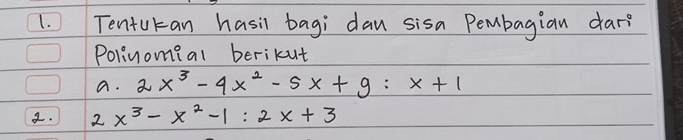 1. Tentukan hasil bagi dan sisa Pembagian dari
Polinomial berikut
a. 2x³ - 4x² - 5x + 9 : x + 1
2. 2x³ - x² - 1 : 2x + 3